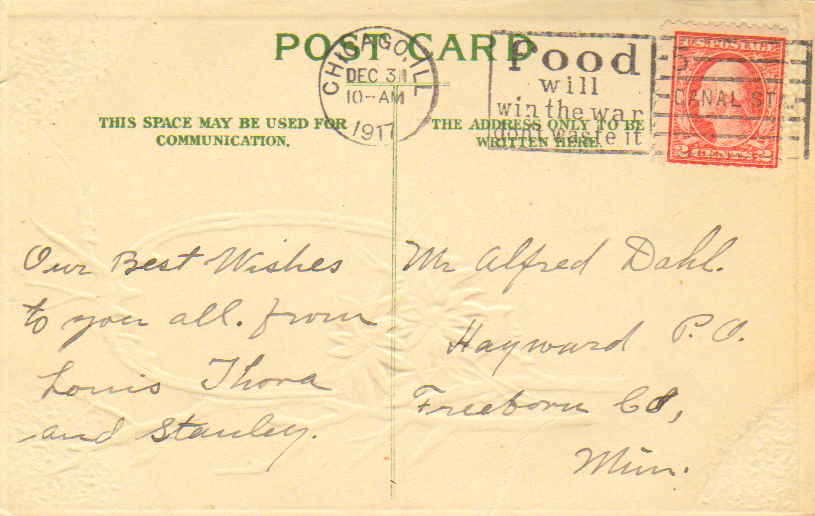 POST CARD
CHICAGO, ILL
DEC 31
10-AM
1917
Food
will
win the war
don't waste it
U.S. POSTAGE
CANAL ST.
2 CENTS 2
THIS SPACE MAY BE USED FOR
COMMUNICATION.
THE ADDRESS ONLY TO BE
WRITTEN HERE.
Our Best Wishes
to you all. from
Louis Thora
and Stanley.
Mr Alfred Dahl.
Hayward P.O.
Freeborn Co,
Minn.